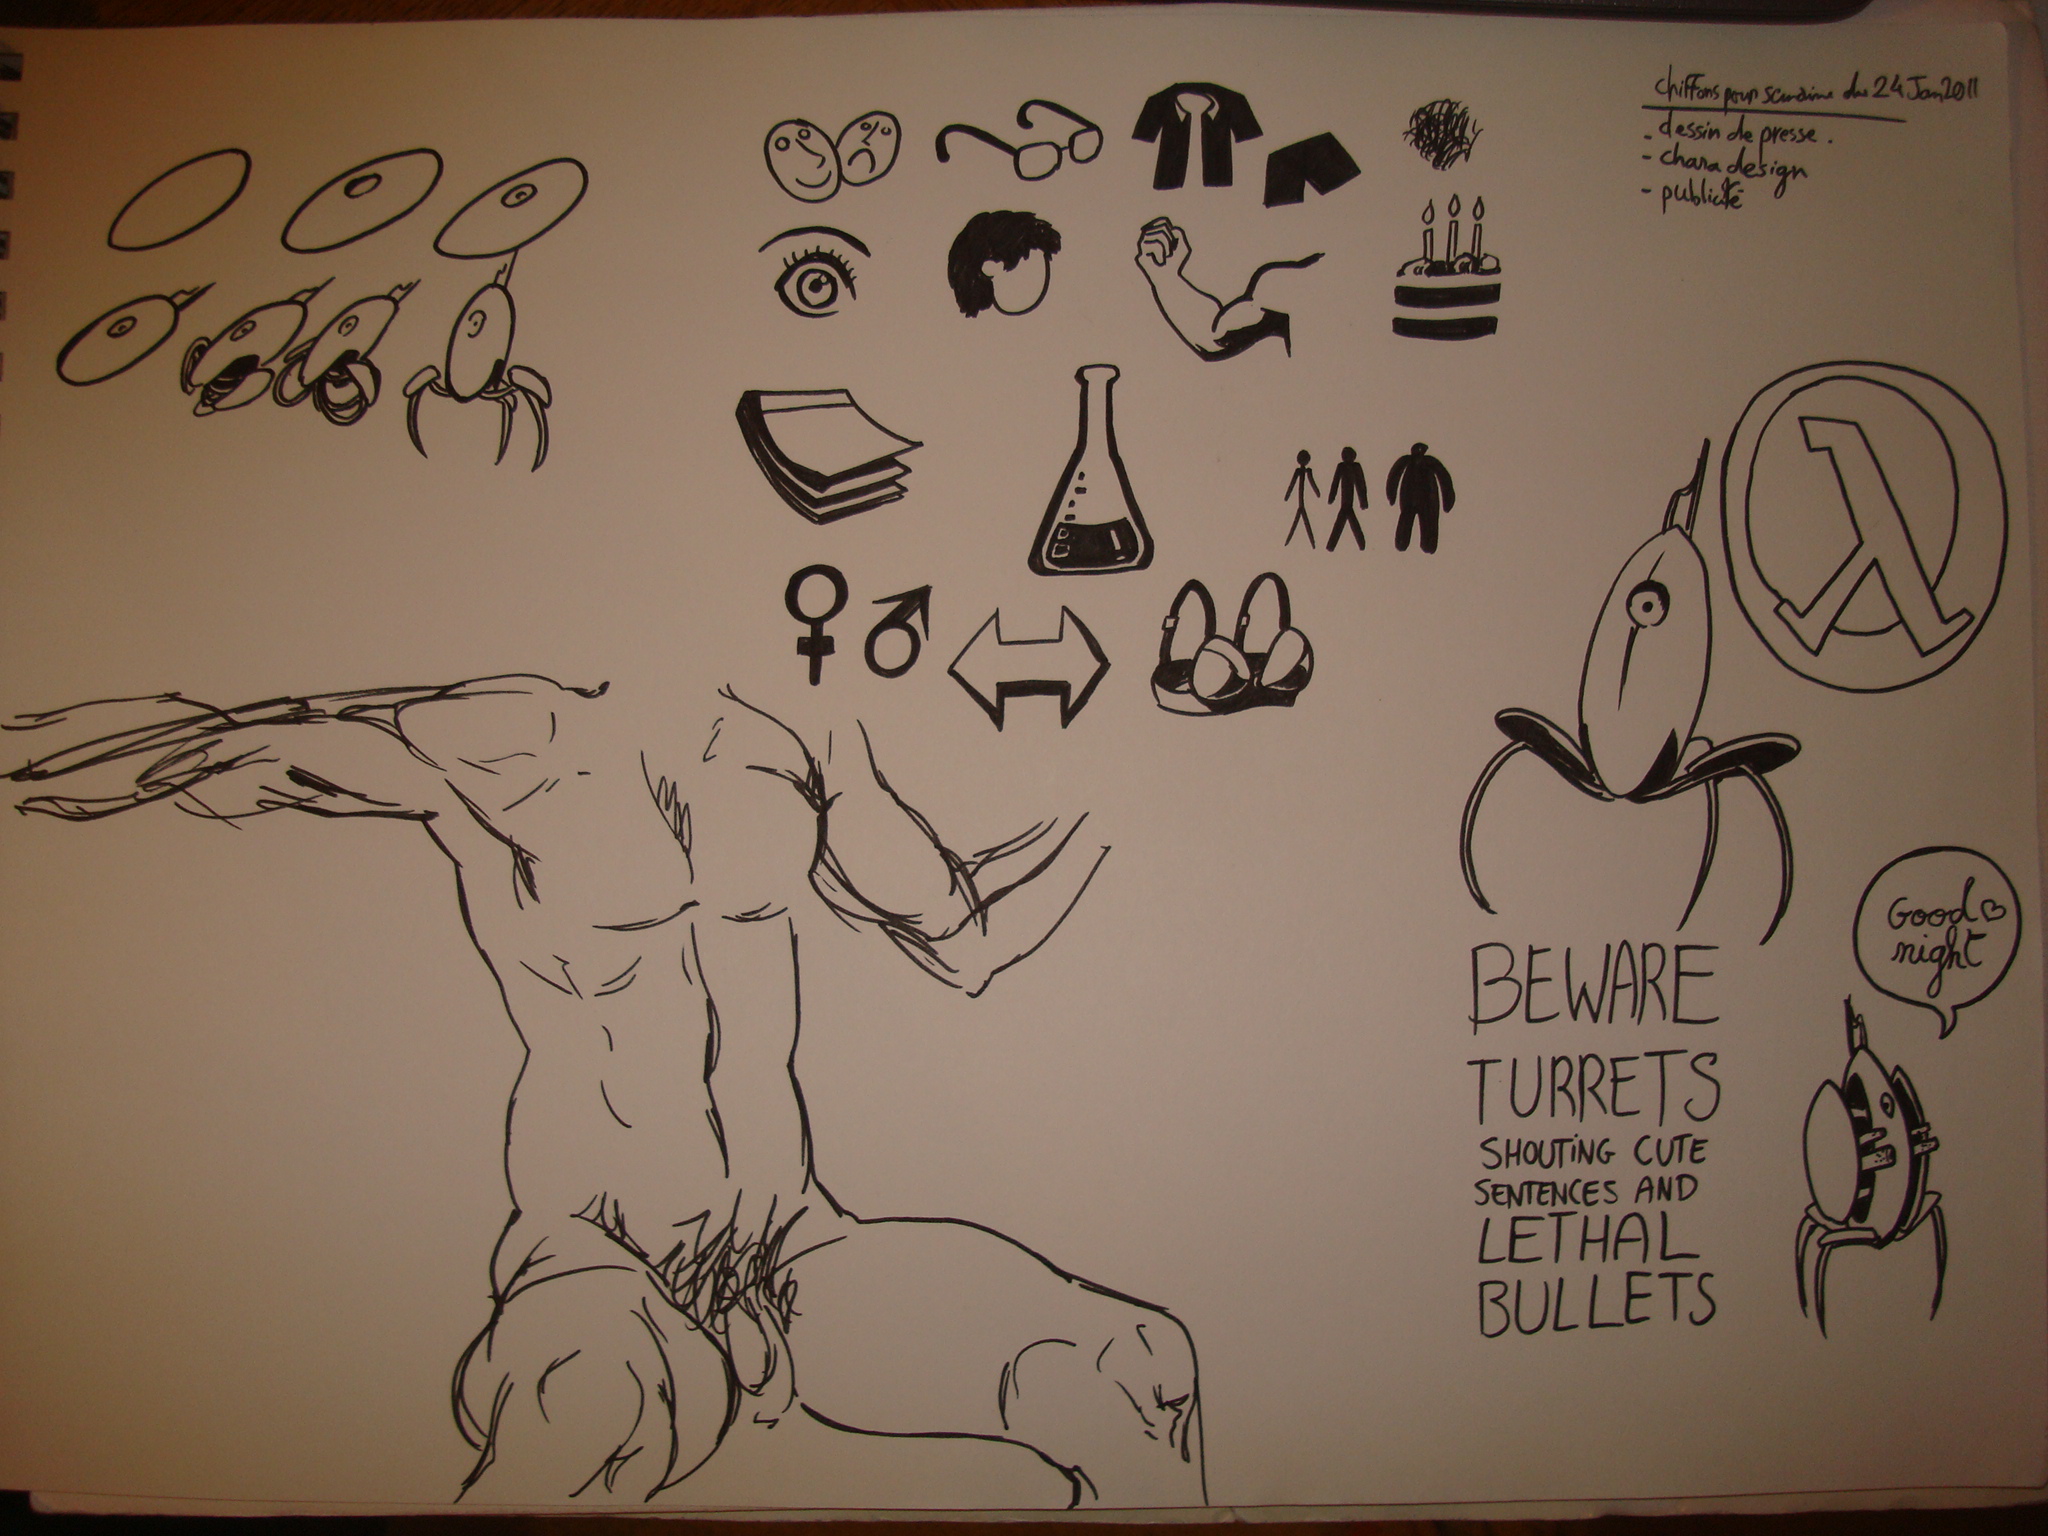 chiffons pour semaine du 24 Jan 2011
- dessin de presse.
- chara design
- publicité
λ
Good
night
BEWARE
TURRETS
SHOUTING CUTE
SENTENCES AND
LETHAL
BULLETS